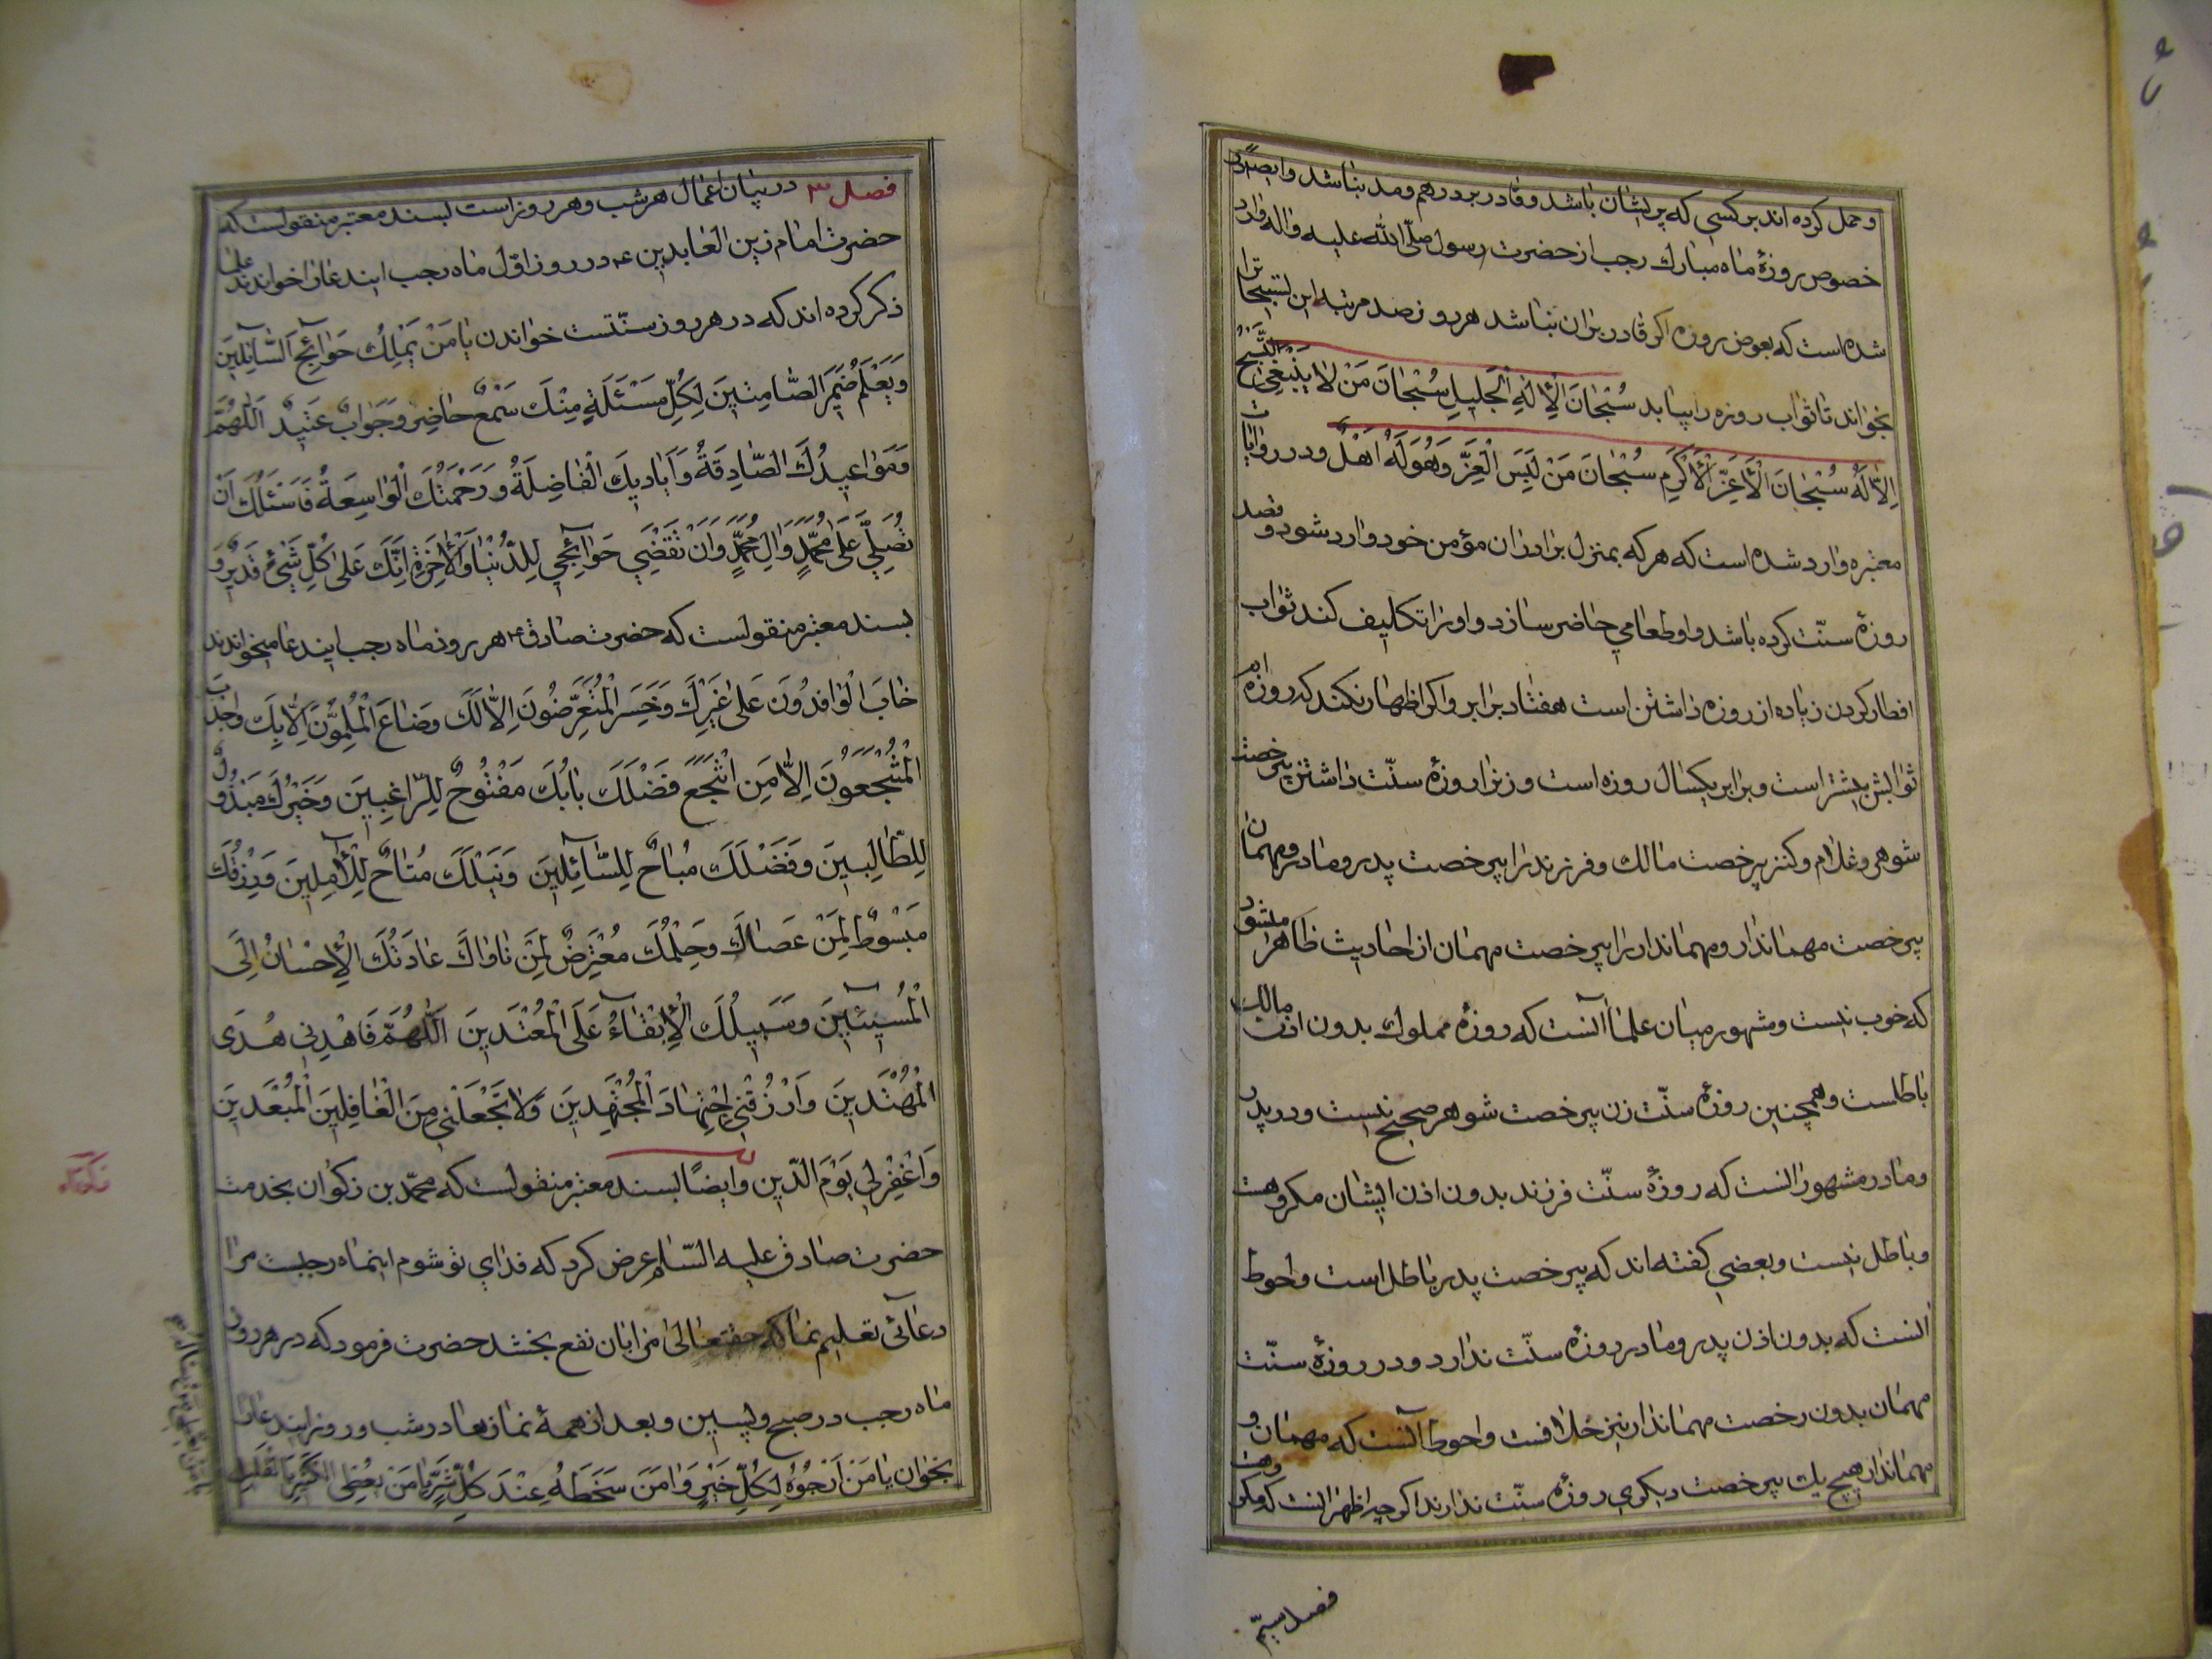 و حمل کرده اند بر کسی که پریشان باشد و قادر بر درهم و مد نباشد و ایضا در
خصوص روزهٔ ماه مبارك رجب از حضرت رسول صلّی الله علیه واله وارد
شده است که بعوض روزه اکر قادر بران نباشد هر روز صد مرتبه این تسبیحات را
بخواند تا ثواب روزه را بیابد سُبْحٰانَ الْاِلٰهِ الْجَلیلِ سُبْحٰانَ مَنْ لٰا یَنْبَغِی التَّسْبیحُ
اِلّٰا لَهُ سُبْحٰانَ الْاَعَزِّ الْاَکْرَمِ سُبْحٰانَ مَنْ لَبِسَ الْعِزَّ وَهُوَ لَهُ اَهْلٌ و در روایات
معتبره وارد شده است که هر که بمنزل برادران مؤمن خود وارد شود و قصد
روزهٔ سنّت کرده باشد و او طعامی حاضر سازد و او را تکلیف کند ثواب
افطار کردن زیاده از روزه داشتن است هفتاد برابر و اکر اظهار نکند که روزه ام
ثوابش بیشتر است و برابر یکسال روزه است و زنرا روزهٔ سنّت داشتن بیرخصت
شوهر و غلام و کنیز بیرخصت مالك و فرزند را بیرخصت پدر و مادر و مهمان
بیرخصت مهماندار و مهماندار را بیرخصت مهمان از احادیث ظاهر میشود
که خوب نیست و مشهور میان علما آنست که روزهٔ مملوك بدون اذن مالك
باطلست و همچنین روزهٔ سنّت زن بیرخصت شوهر صحیح نیست و در پدر
و مادر مشهور انست که روزهٔ سنّت فرزند بدون اذن ایشان مکروهست
و باطل نیست و بعضی کفته اند که بیرخصت پدر باطل است و احوط
انست که بدون اذن پدر و مادر روزهٔ سنّت ندارد و در روزهٔ سنّت
مهمان بدون رخصت مهماندار نیز خلافست و احوط آنست که مهمان و
مهماندار هیچ یك بیرخصت دیکری روزهٔ سنّت ندارند اکرچه اظهر انست که مکروهست
فصل سیّم
فصل ۳ در بیان اعمال هر شب و هر روز است بسند معتبر منقولست که
حضرت امام زین العابدین ع در روز اوّل ماه رجب ایندعا را خواندند علما
ذکر کرده اند که در هر روز سنّتست خواندن یٰا مَنْ یَمْلِكُ حَوٰآئِجَ السّٰآئِلینَ
وَیَعْلَمُ ضَمیرَ الصّٰامِتینَ لِکُلِّ مَسْئَلَةٍ مِنْكَ سَمْعٌ حٰاضِرٌ وَجَوٰابٌ عَتیدٌ اَللّٰهُمَّ
وَمَوٰاعیدُكَ الصّٰادِقَةُ وَاَیٰادیكَ الْفٰاضِلَةُ وَرَحْمَتُكَ الْوٰاسِعَةُ فَاَسْئَلُكَ اَنْ
تُصَلِّیَ عَلیٰ مُحَمَّدٍ وَاٰلِ مُحَمَّدٍ وَاَنْ تَقْضِیَ حَوٰآئِجی لِلدُّنْیٰا وَالْاٰخِرَةِ اِنَّكَ عَلیٰ کُلِّ شَیْئٍ قَدیرٌ و
بسند معتبر منقولست که حضرت صادق ع هر روز ماه رجب ایندعا میخواندند
خٰابَ الْوٰافِدُونَ عَلیٰ غَیْرِكَ وَخَسِرَ الْمُتَعَرِّضُونَ اِلّٰا لَكَ وَضٰاعَ الْمُلِمُّونَ اِلّٰا بِكَ وَاَجْدَبَ
الْمُنْتَجِعُونَ اِلّٰا مَنِ انْتَجَعَ فَضْلَكَ بٰابُكَ مَفْتُوحٌ لِلرّٰاغِبینَ وَخَیْرُكَ مَبْذُولٌ
لِلطّٰالِبینَ وَفَضْلُكَ مُبٰاحٌ لِلسّٰآئِلینَ وَنَیْلُكَ مُتٰاحٌ لِلْاٰمِلینَ وَرِزْقُكَ
مَبْسُوطٌ لِمَنْ عَصٰاكَ وَحِلْمُكَ مُعْتَرِضٌ لِمَنْ نٰاوٰاكَ عٰادَتُكَ الْاِحْسٰانُ اِلَی
الْمُسیٓئینَ وَسَبیلُكَ الْاِبْقٰآءُ عَلَی الْمُعْتَدینَ اَللّٰهُمَّ فَاهْدِنی هُدَی
الْمُهْتَدینَ وَارْزُقْنِی اجْتِهٰادَ الْمُجْتَهِدینَ وَلٰا تَجْعَلْنی مِنَ الْغٰافِلینَ الْمُبْعَدینَ
وَاغْفِرْلی یَوْمَ الدّینِ و ایضًا بسند معتبر منقولست که محمّد بن ذکوان بخدمت
حضرت صادق علیه السّلام عرض کرد که فدای تو شوم اینماه رجبست مرا
دعآئی تعلیم نما که حقتعالی مرا بان نفع بخشد حضرت فرمود که در هر روز
ماه رجب در صبح و پسین و بعد از همهٔ نمازها در شب و روز ایندعا را
بخوان یٰا مَنْ اَرْجُوهُ لِکُلِّ خَیْرٍ وَاٰمَنُ سَخَطَهُ عِنْدَ کُلِّ شَرٍّ یٰا مَنْ یُعْطِی الْکَثیرَ بِالْقَلیلِ